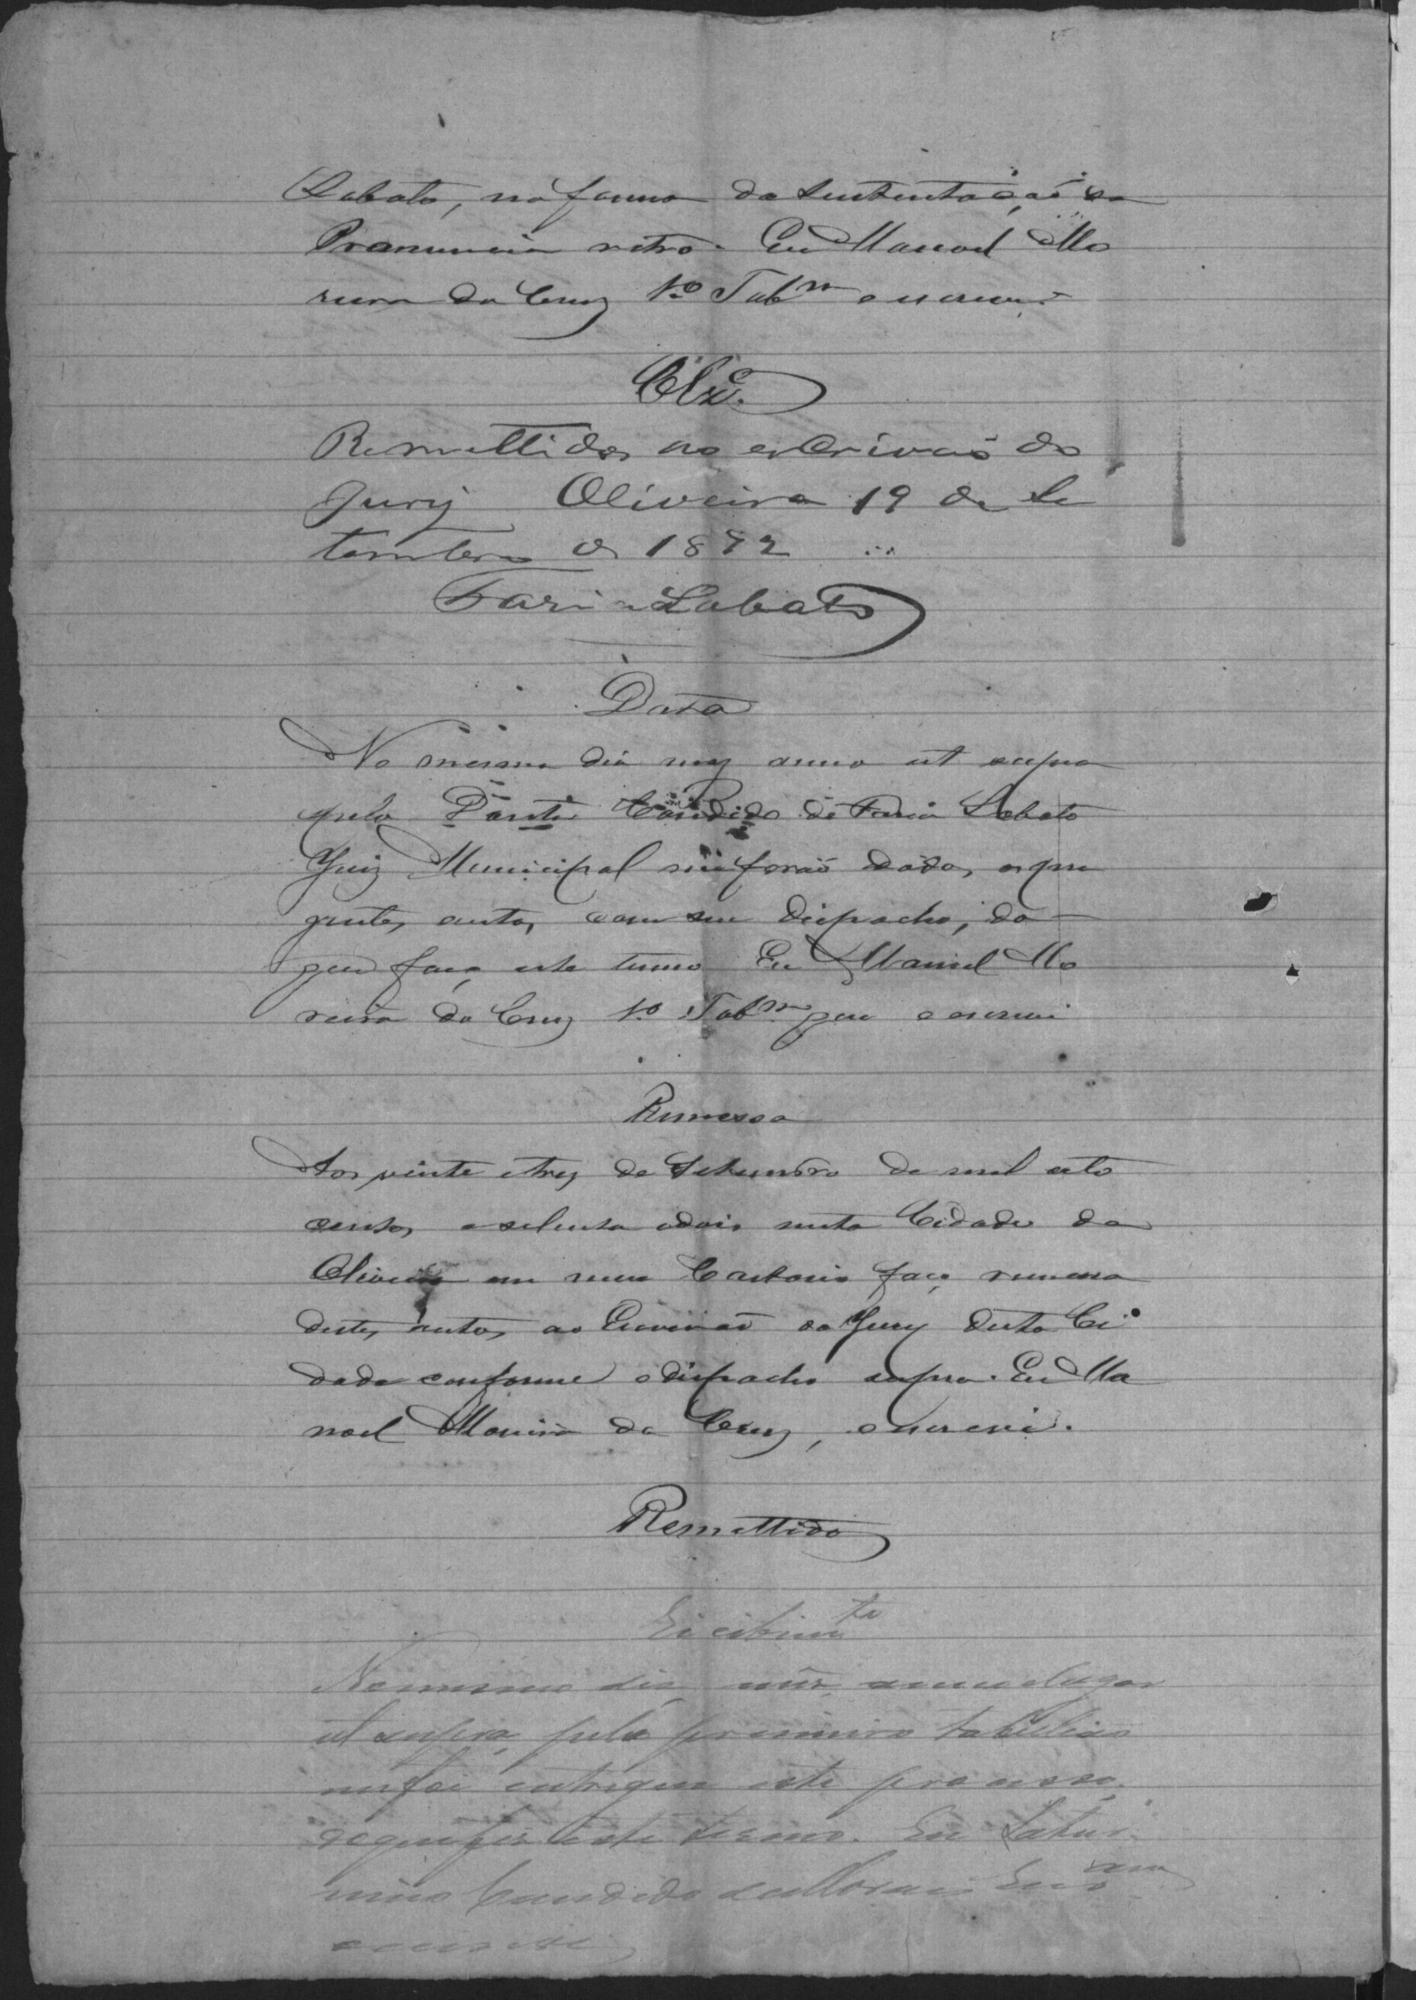 Lobato, na forma da sustentação da
Pronuncia retro. Eu Manoel Mo
reira da Cruz 1º Tabm o escrevi
Clx.
Remettidos ao escrivaõ do
Jury Oliveira 19 de Se
tembro de 1872
Faria Lobato
Data
No mesmo dia mez anno ut supra
pelo Doutor Candido de Faria Lobato
Juiz Municipal me foraõ dados os pre
zentes autos com seu despacho, do
que faço este termo Eu Manoel Mo
reira da Cruz 1º Tabm que o escrevi
Remessa
Aos vinte e tres de Setembro de mil oito
centos e setenta e dois nesta Cidade da
Oliveira em meu Cartorio faço remessa
destes autos ao Escrivaõ do Jury desta Ci
dade conforme o despacho supra. Eu Ma
noel Moreira da Cruz, o escrevi.
Remettido
Recebimto
No mesmo dia mez anno e lugar
ut supra pelo primeiro tabelliaõ
me foi entregue este processo,
do que fiz este termo. Eu Satur
nino Candido de Moraes
escrevi